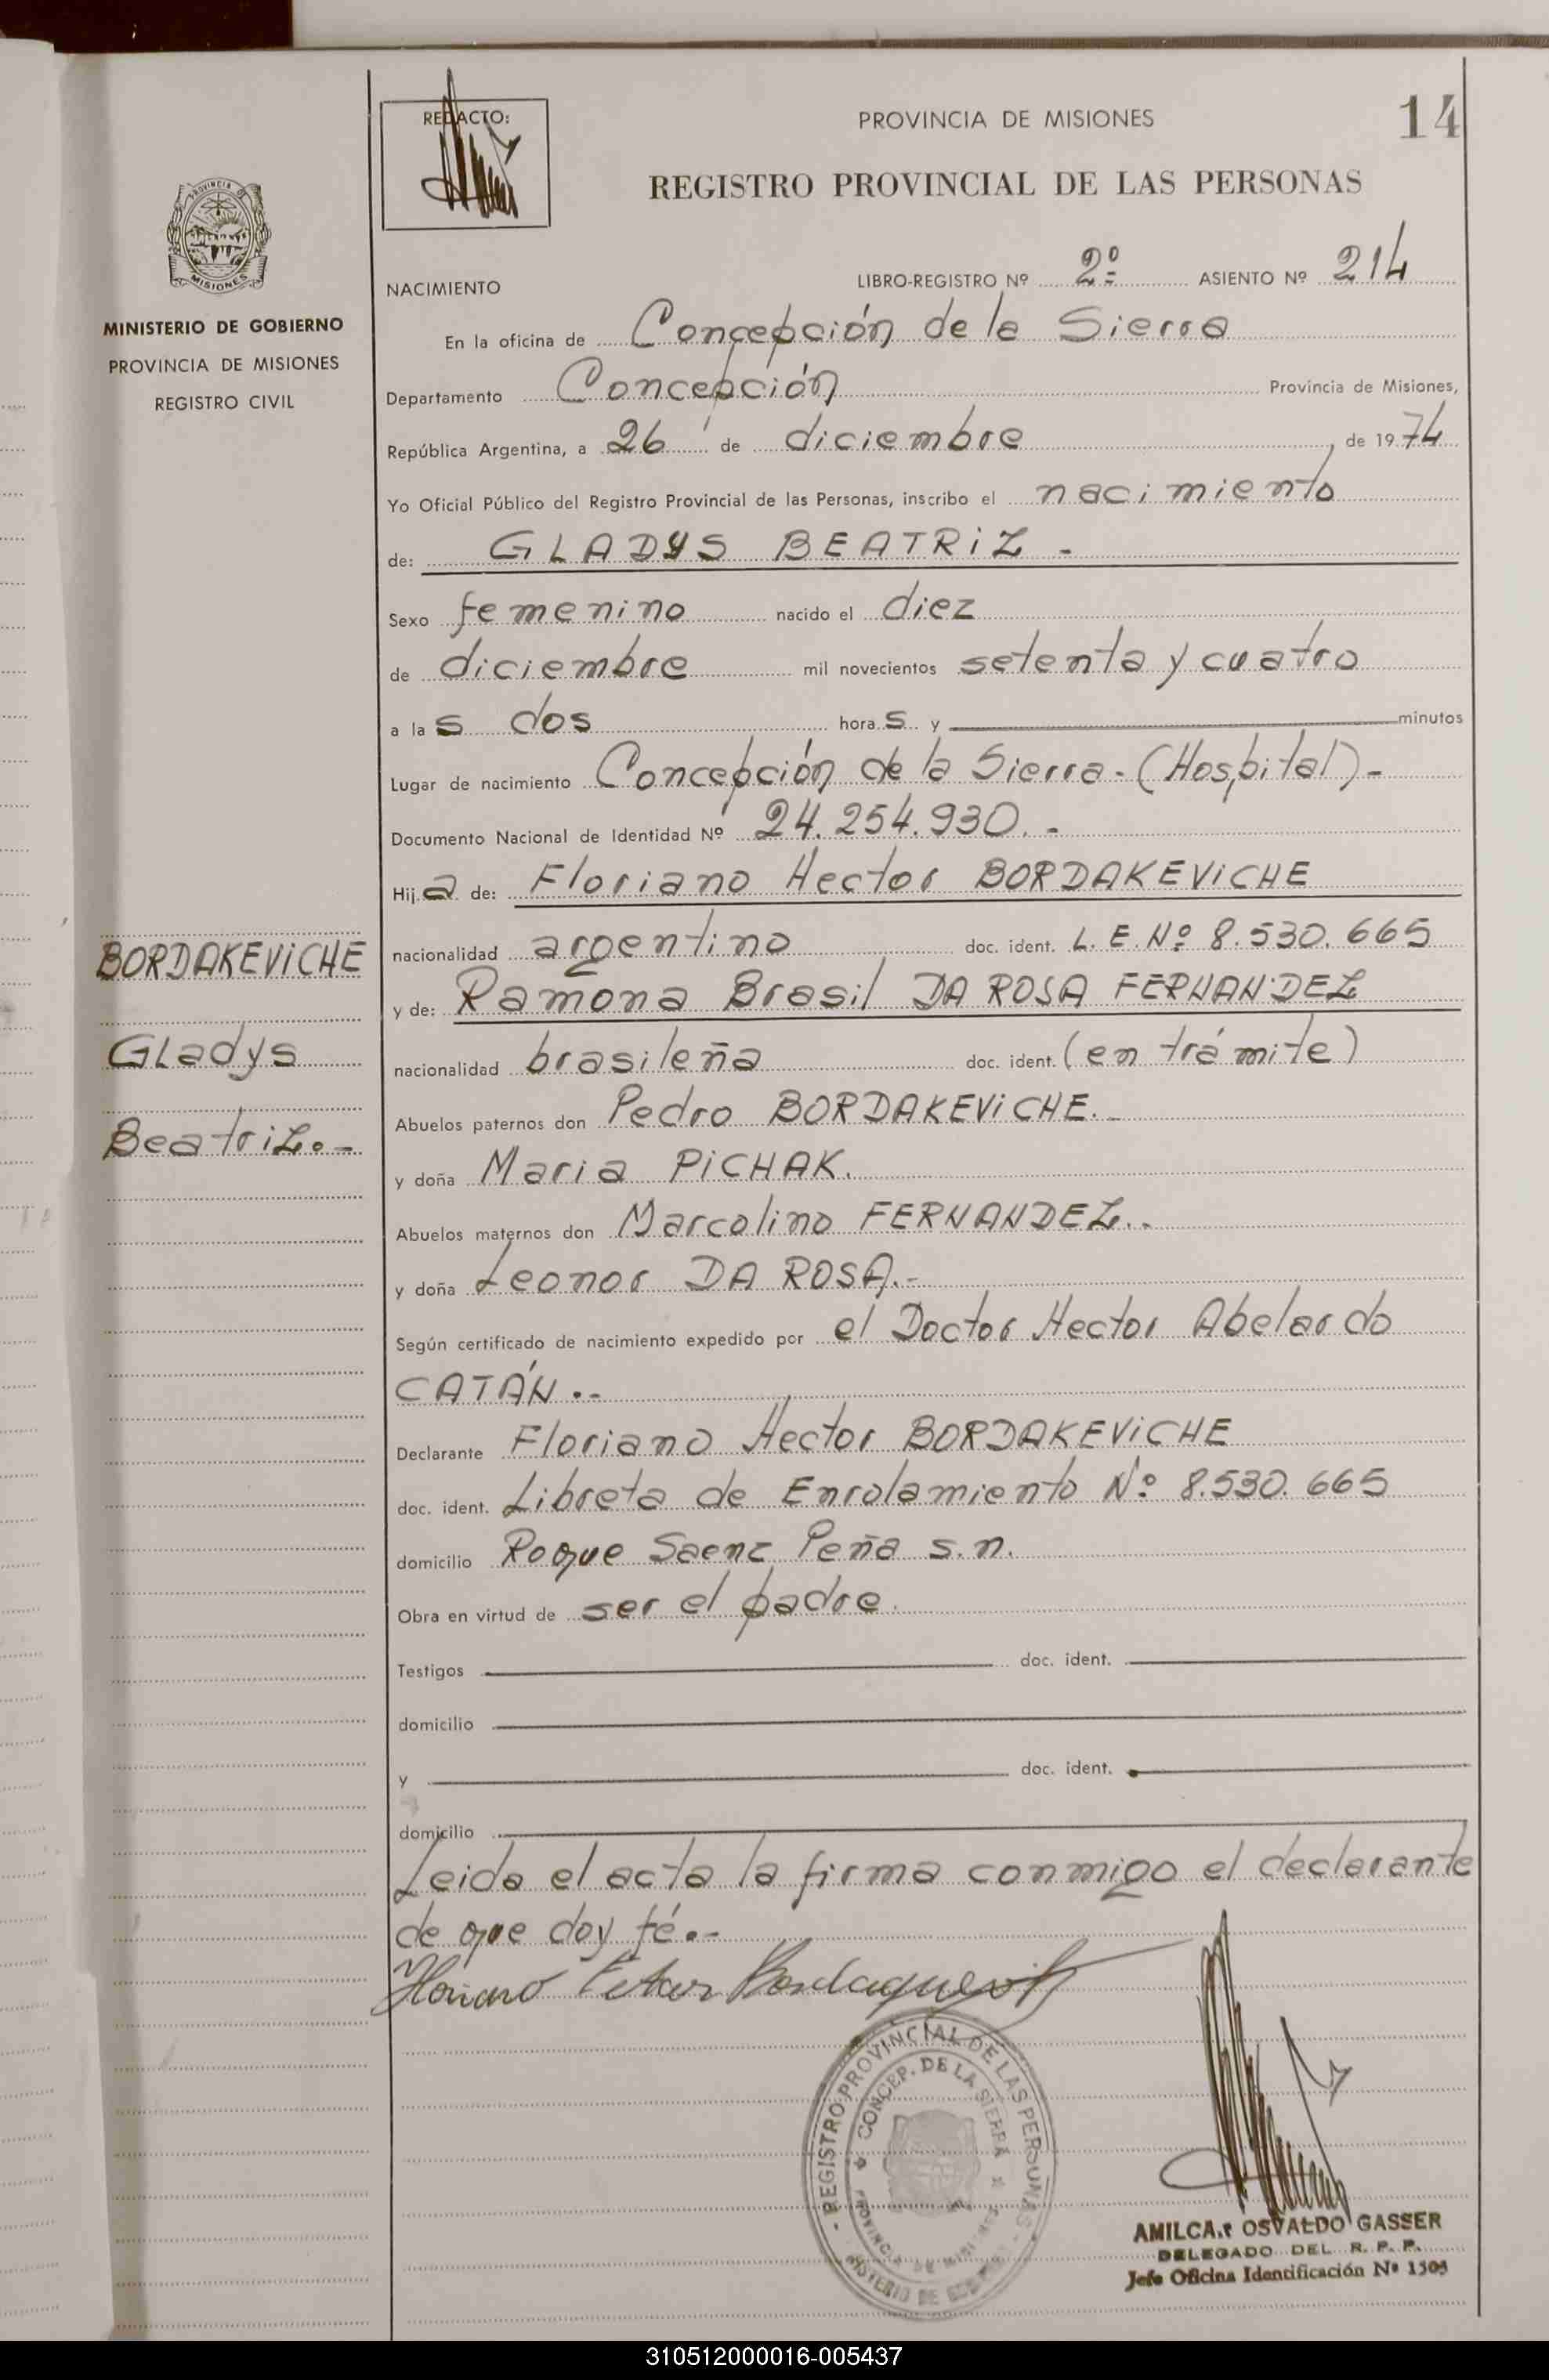 REDACTO:
PROVINCIA DE MISIONES
14
REGISTRO PROVINCIAL DE LAS PERSONAS
PROVINCIA DE
MISIONES
MINISTERIO DE GOBIERNO
PROVINCIA DE MISIONES
REGISTRO CIVIL
NACIMIENTO LIBRO-REGISTRO Nº 2º ASIENTO Nº 214
En la oficina de Concepción de la Sierra
Departamento Concepción Provincia de Misiones,
República Argentina, a 26 de diciembre, de 1974
Yo Oficial Público del Registro Provincial de las Personas, inscribo el nacimiento
de: GLADYS BEATRIZ -
Sexo femenino nacido el diez
de diciembre mil novecientos setenta y cuatro
a las dos horas y minutos
Lugar de nacimiento Concepción de la Sierra - (Hospital) -
Documento Nacional de Identidad Nº 24.254.930. -
Hija de: Floriano Hector BORDAKEVICHE
nacionalidad argentino doc. ident. L. E. Nº 8.530.665
y de: Ramona Brasil DA ROSA FERNANDEZ
nacionalidad brasileña doc. ident. (en trámite)
Abuelos paternos don Pedro BORDAKEVICHE.
y doña Maria PICHAK.
Abuelos maternos don Marcolino FERNANDEZ..
y doña Leonor DA ROSA.-
Según certificado de nacimiento expedido por el Doctor Hector Abelardo
CATÁN.-
Declarante Floriano Hector BORDAKEVICHE
doc. ident. Libreta de Enrolamiento Nº 8.530.665
domicilio Roque Saenz Peña s.n.
Obra en virtud de ser el padre.
Testigos doc. ident.
domicilio
y doc. ident.
domicilio
Leida el acta la firma conmigo el declarante
de que doy fé.-
BORDAKEVICHE
Gladys
Beatriz.-
REGISTRO PROVINCIAL DE LAS PERSONAS
CONCEP. DE LA SIERRA
PROVINCIA DE MISIONES
AMILCAR OSVALDO GASSER
DELEGADO DEL R. P. P.
Jefe Oficina Identificación Nº 1505
310512000016-005437